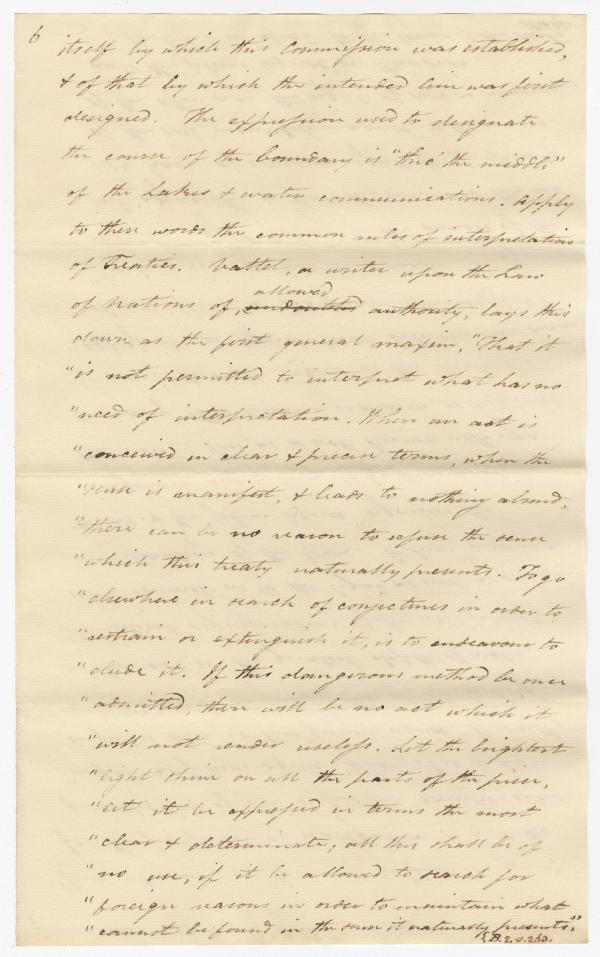 6
itself by which this Commission was established,
& of that by which the intended line was first
designed. The expression used to designate
the course of the boundary is "thro' the middle"
of the Lakes & water communications. Apply
to these words the common rules of interpretation
of Treaties. Vattel, a writer upon the Law
allowed
of Nations of, undoubted authority, lays this
down as the first general maxim, "That it
"is not permitted to interpret what has no
"need of interpretation. When an act is
"conceived in clear & precise terms, when the
"sense is manifest, & leads to nothing absurd,
"there can be no reason to refuse the sense
"which this treaty naturally presents. To go
"elsewhere in search of conjectures in order to
"restrain or extinguish it, is to endeavour to
"elude it. If this dangerous method be once
"admitted, there will be no act which it
"will not render useless. Let the brightest
"light shine on all the parts of the piece,
"let it be expressed in terms the most
"clear & determinate; all this shall be of
"no use, if it be allowed to search for
"foreign reasons in order to maintain what
"cannot be found in the sense it naturally presents."
B. 2. s. 263.